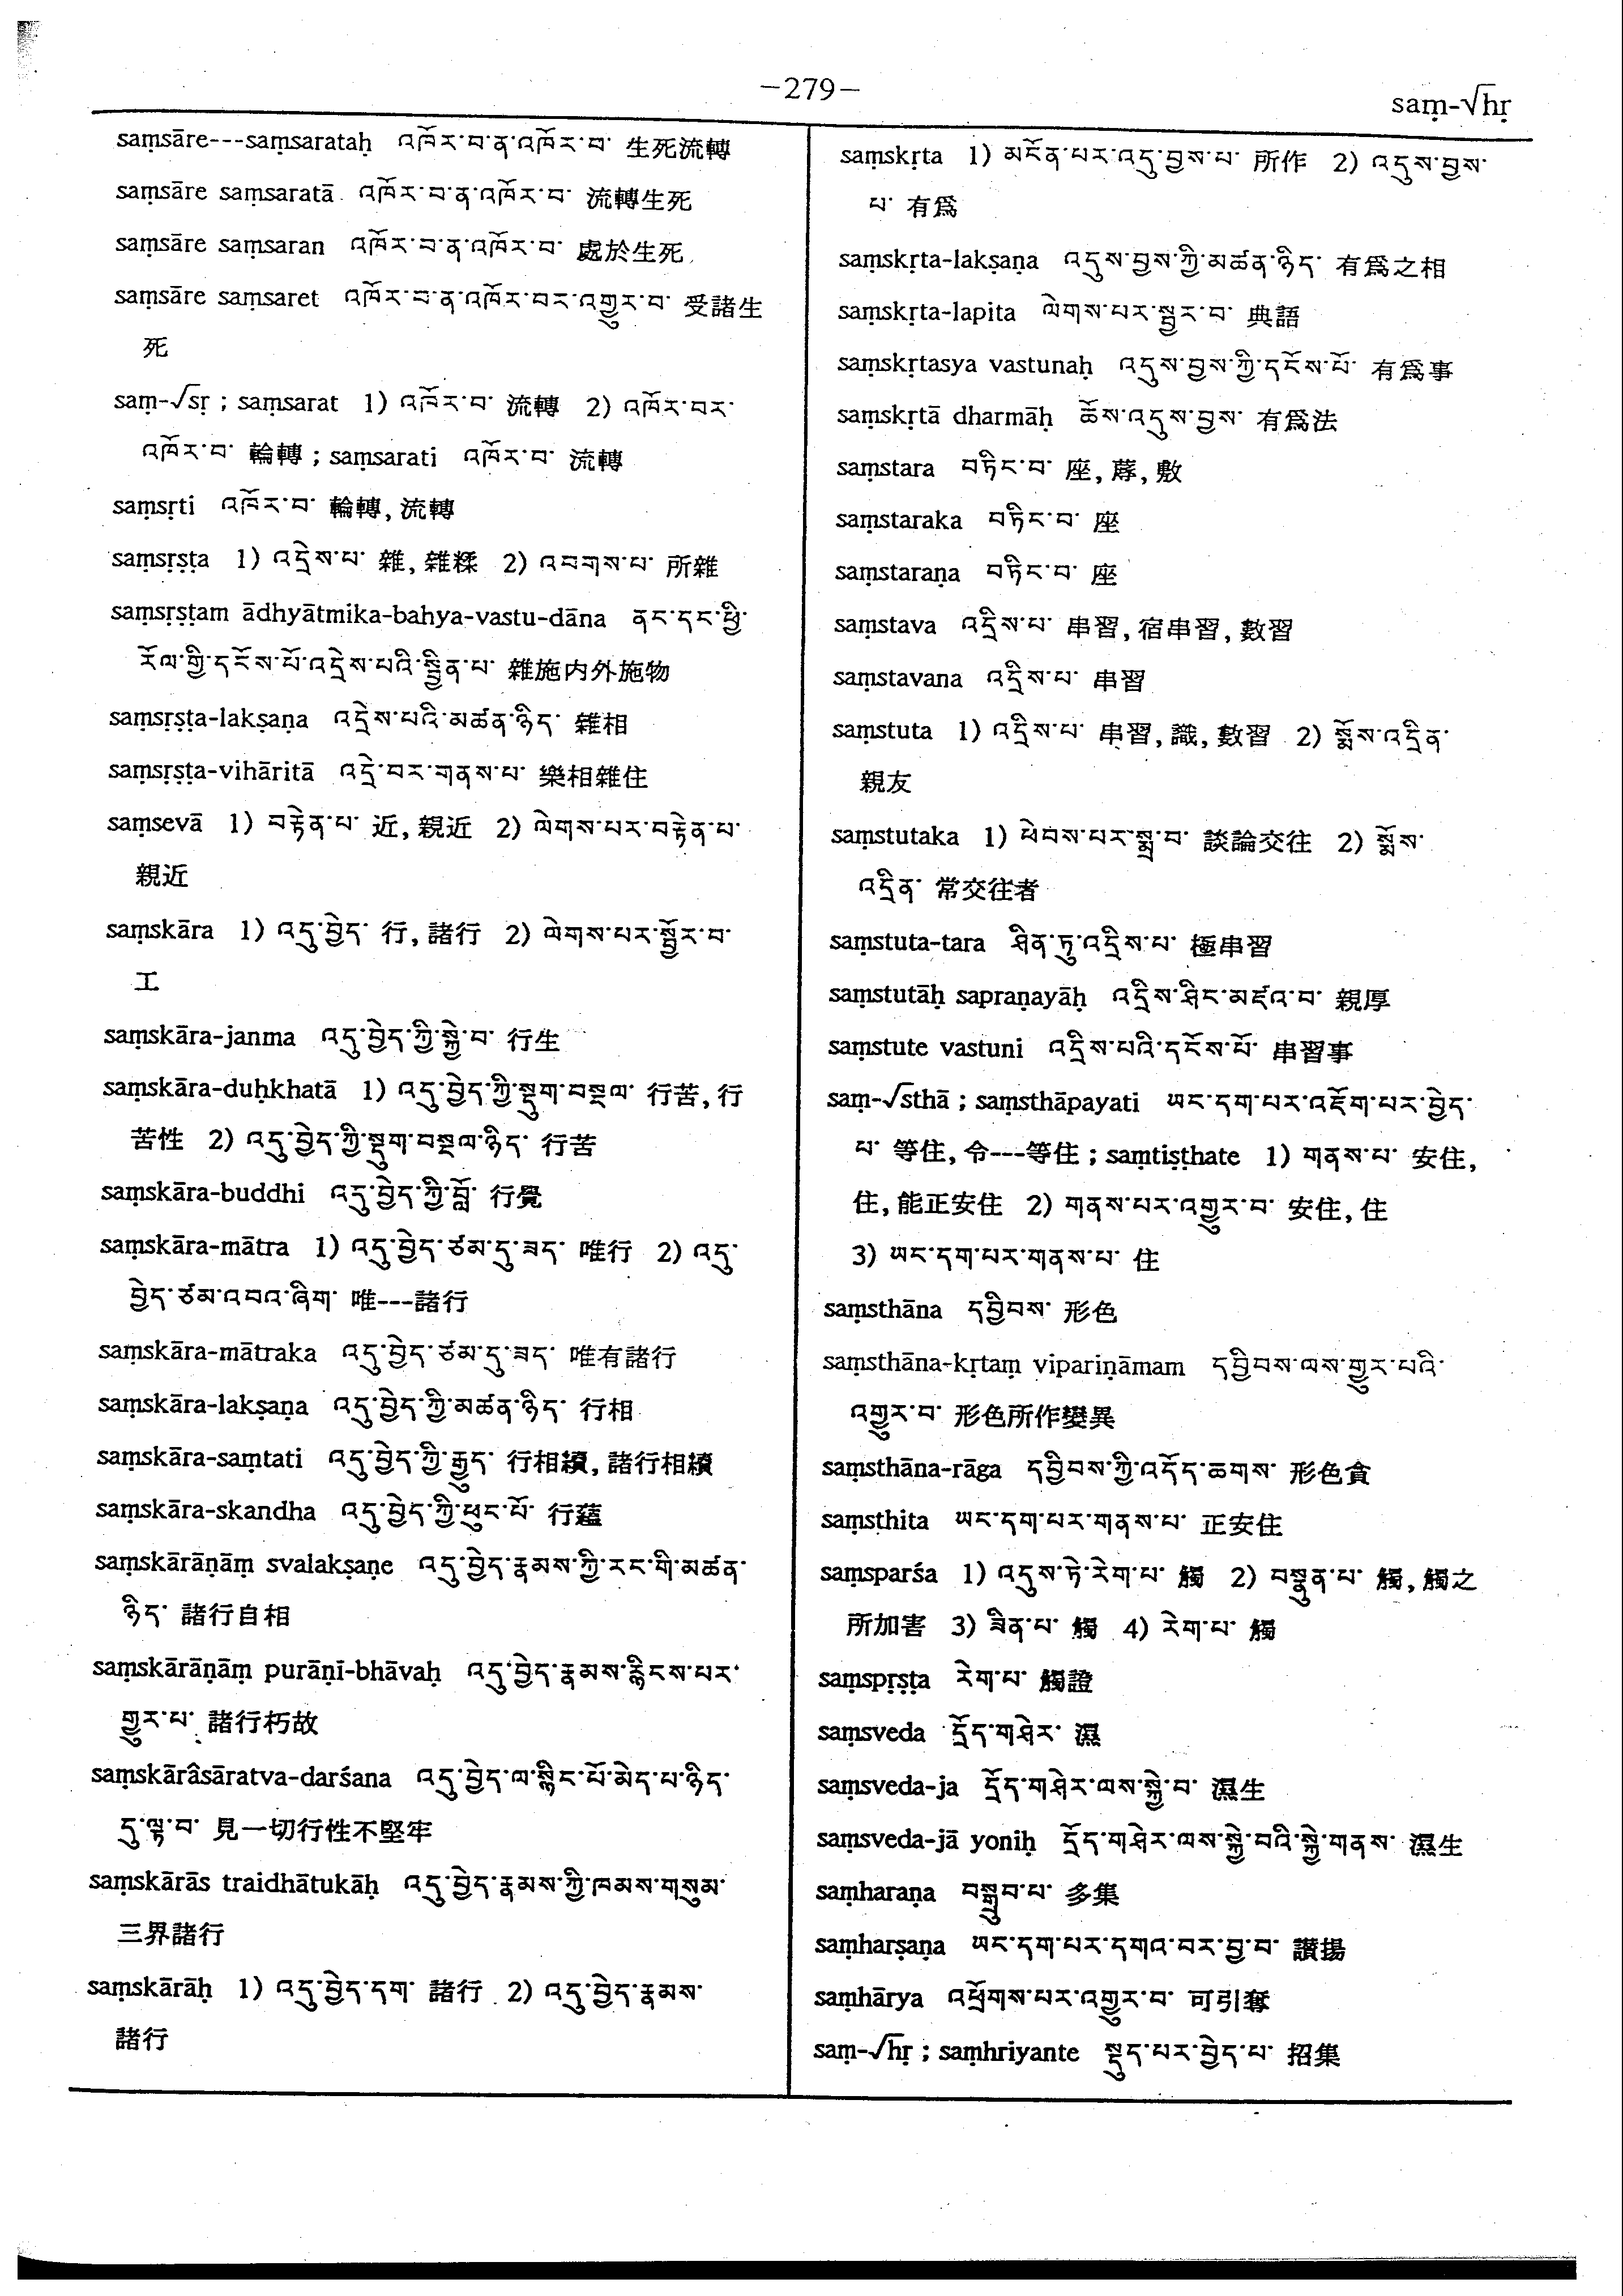 —279—
saṃ-√hṛ
saṃsāre---saṃsarataḥ འཁོར་བ་ན་འཁོར་བ་ 生死流轉
saṃsāre saṃsaratā འཁོར་བ་ན་འཁོར་བ་ 流轉生死
saṃsāre saṃsaran འཁོར་བ་ན་འཁོར་བ་ 處於生死
saṃsāre saṃsaret འཁོར་བ་ན་འཁོར་བར་འགྱུར་བ་ 受諸生
死
saṃ-√sṛ ; saṃsarat 1) འཁོར་བ་ 流轉 2) འཁོར་བར་
འཁོར་བ་ 輪轉 ; saṃsarati འཁོར་བ་ 流轉
saṃsṛti འཁོར་བ་ 輪轉, 流轉
saṃsṛṣṭa 1) འདྲེས་པ་ 雜, 雜糅 2) འབགས་པ་ 所雜
saṃsṛṣṭam ādhyātmika-bahya-vastu-dāna ནང་དང་ཕྱི་
རོལ་གྱི་དངོས་པོ་འདྲེས་པའི་སྦྱིན་པ་ 雜施内外施物
saṃsṛṣṭa-lakṣaṇa འདྲེས་པའི་མཚན་ཉིད་ 雜相
saṃsṛṣṭa-vihāritā འདྲེ་བར་གནས་པ་ 樂相雜住
saṃsevā 1) བརྟེན་པ་ 近, 親近 2) ལེགས་པར་བརྟེན་པ་
親近
saṃskāra 1) འདུ་བྱེད་ 行, 諸行 2) ལེགས་པར་སྦྱོར་བ་
工
saṃskāra-janma འདུ་བྱེད་ཀྱི་སྐྱེ་བ་ 行生
saṃskāra-duḥkhatā 1) འདུ་བྱེད་ཀྱི་སྡུག་བསྔལ་ 行苦, 行
苦性 2) འདུ་བྱེད་ཀྱི་སྡུག་བསྔལ་ཉིད་ 行苦
saṃskāra-buddhi འདུ་བྱེད་ཀྱི་བློ་ 行覺
saṃskāra-mātra 1) འདུ་བྱེད་ཙམ་དུ་ཟད་ 唯行 2) འདུ་
བྱེད་ཙམ་འབའ་ཞིག་ 唯---諸行
saṃskāra-mātraka འདུ་བྱེད་ཙམ་དུ་ཟད་ 唯有諸行
saṃskāra-lakṣaṇa འདུ་བྱེད་ཀྱི་མཚན་ཉིད་ 行相
saṃskāra-saṃtati འདུ་བྱེད་ཀྱི་རྒྱུད་ 行相續, 諸行相續
saṃskāra-skandha འདུ་བྱེད་ཀྱི་ཕུང་པོ་ 行蘊
saṃskārāṇāṃ svalakṣaṇe འདུ་བྱེད་རྣམས་ཀྱི་རང་གི་མཚན་
ཉིད་ 諸行自相
saṃskārāṇāṃ purāṇī-bhāvaḥ འདུ་བྱེད་རྣམས་རྙིངས་པར་
གྱུར་པ་ 諸行朽故
saṃskārâsāratva-darśana འདུ་བྱེད་ལ་སྙིང་པོ་མེད་པ་ཉིད་
དུ་ལྟ་བ་ 見一切行性不堅牢
saṃskārās traidhātukāḥ འདུ་བྱེད་རྣམས་ཀྱི་ཁམས་གསུམ་
三界諸行
saṃskārāḥ 1) འདུ་བྱེད་དག་ 諸行 2) འདུ་བྱེད་རྣམས་
諸行
saṃskṛta 1) མངོན་པར་འདུ་བྱས་པ་ 所作 2) འདུས་བྱས་
པ་ 有爲
saṃskṛta-lakṣaṇa འདུས་བྱས་ཀྱི་མཚན་ཉིད་ 有爲之相
saṃskṛta-lapita ལེགས་པར་སྦྱར་བ་ 典語
saṃskṛtasya vastunaḥ འདུས་བྱས་ཀྱི་དངོས་པོ་ 有爲事
saṃskṛtā dharmāḥ ཆོས་འདུས་བྱས་ 有爲法
saṃstara བཏིང་བ་ 座, 蓐, 敷
saṃstaraka བཏིང་བ་ 座
saṃstaraṇa བཏིང་བ་ 座
saṃstava འདྲིས་པ་ 串習, 宿串習, 數習
saṃstavana འདྲིས་པ་ 串習
saṃstuta 1) འདྲིས་པ་ 串習, 識, 數習 2) སྨོས་འདྲིན་
親友
saṃstutaka 1) ཕེབས་པར་སྨྲ་བ་ 談論交往 2) སྨོས་
འདྲིན་ 常交往者
saṃstuta-tara ཤིན་ཏུ་འདྲིས་པ་ 極串習
saṃstutāḥ sapraṇayāḥ འདྲིས་ཤིང་མཛའ་བ་ 親厚
saṃstute vastuni འདྲིས་པའི་དངོས་པོ་ 串習事
saṃ-√sthā ; saṃsthāpayati ཡང་དག་པར་འཇོག་པར་བྱེད་
པ་ 等住, 令---等住 ; saṃtiṣṭhate 1) གནས་པ་ 安住,
住, 能正安住 2) གནས་པར་འགྱུར་བ་ 安住, 住
3) ཡང་དག་པར་གནས་པ་ 住
saṃsthāna དབྱིབས་ 形色
saṃsthāna-kṛtaṃ vipariṇāmam དབྱིབས་ལས་གྱུར་པའི་
འགྱུར་བ་ 形色所作變異
saṃsthāna-rāga དབྱིབས་ཀྱི་འདོད་ཆགས་ 形色貪
saṃsthita ཡང་དག་པར་གནས་པ་ 正安住
saṃsparśa 1) འདུས་ཏེ་རེག་པ་ 觸 2) བསྣུན་པ་ 觸, 觸之
所加害 3) ཟིན་པ་ 觸 4) རེག་པ་ 觸
saṃspṛṣṭa རེག་པ་ 觸證
saṃsveda དྲོད་གཤེར་ 濕
saṃsveda-ja དྲོད་གཤེར་ལས་སྐྱེ་བ་ 濕生
saṃsveda-jā yoniḥ དྲོད་གཤེར་ལས་སྐྱེ་བའི་སྐྱེ་གནས་ 濕生
saṃharaṇa བསྒྲུབ་པ་ 多集
saṃharṣaṇa ཡང་དག་པར་དགའ་བར་བྱ་བ་ 讃揚
saṃhārya འཕྲོགས་པར་འགྱུར་བ་ 可引奪
saṃ-√hṛ ; saṃhriyante སྡུད་པར་བྱེད་པ་ 招集